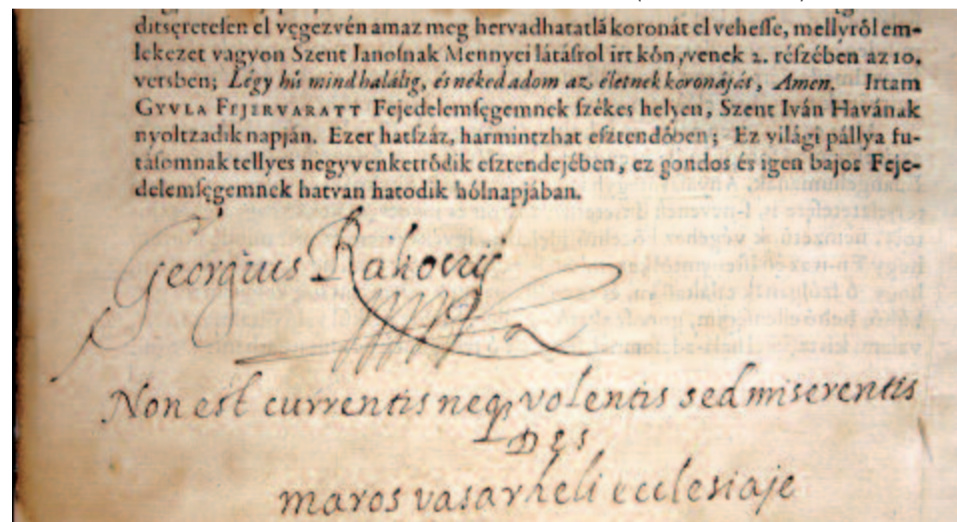 ditseretesen el vęgezvén amaz meg hervadhatatlā koronát el vehesse, mellyről em-
lekezet vagyon Szent Ianosnak Mennyei látásrol irt kön,venek 2. részében az 10.
versben; Légy hű mind halálig, és néked adom az életnek koronáját, Amen. Irtam
GYVLA FEJERVARATT Fejedelemsęgemnek székes helyen, Szent Iván Havának
nyoltzadik napján. Ezer hatszáz, harmintzhat esztendőben; Ez világi pállya fu-
tásomnak tellyes negyvenkettődik esztendejében, ez gondos és igen bajos Feje-
delemsęgemnek hatvan hatodik hólnapjában.
Georgius Rakoczy
Non est currentis neq volentis sed miserentis
Des
maros vasarheli ecclesiaje